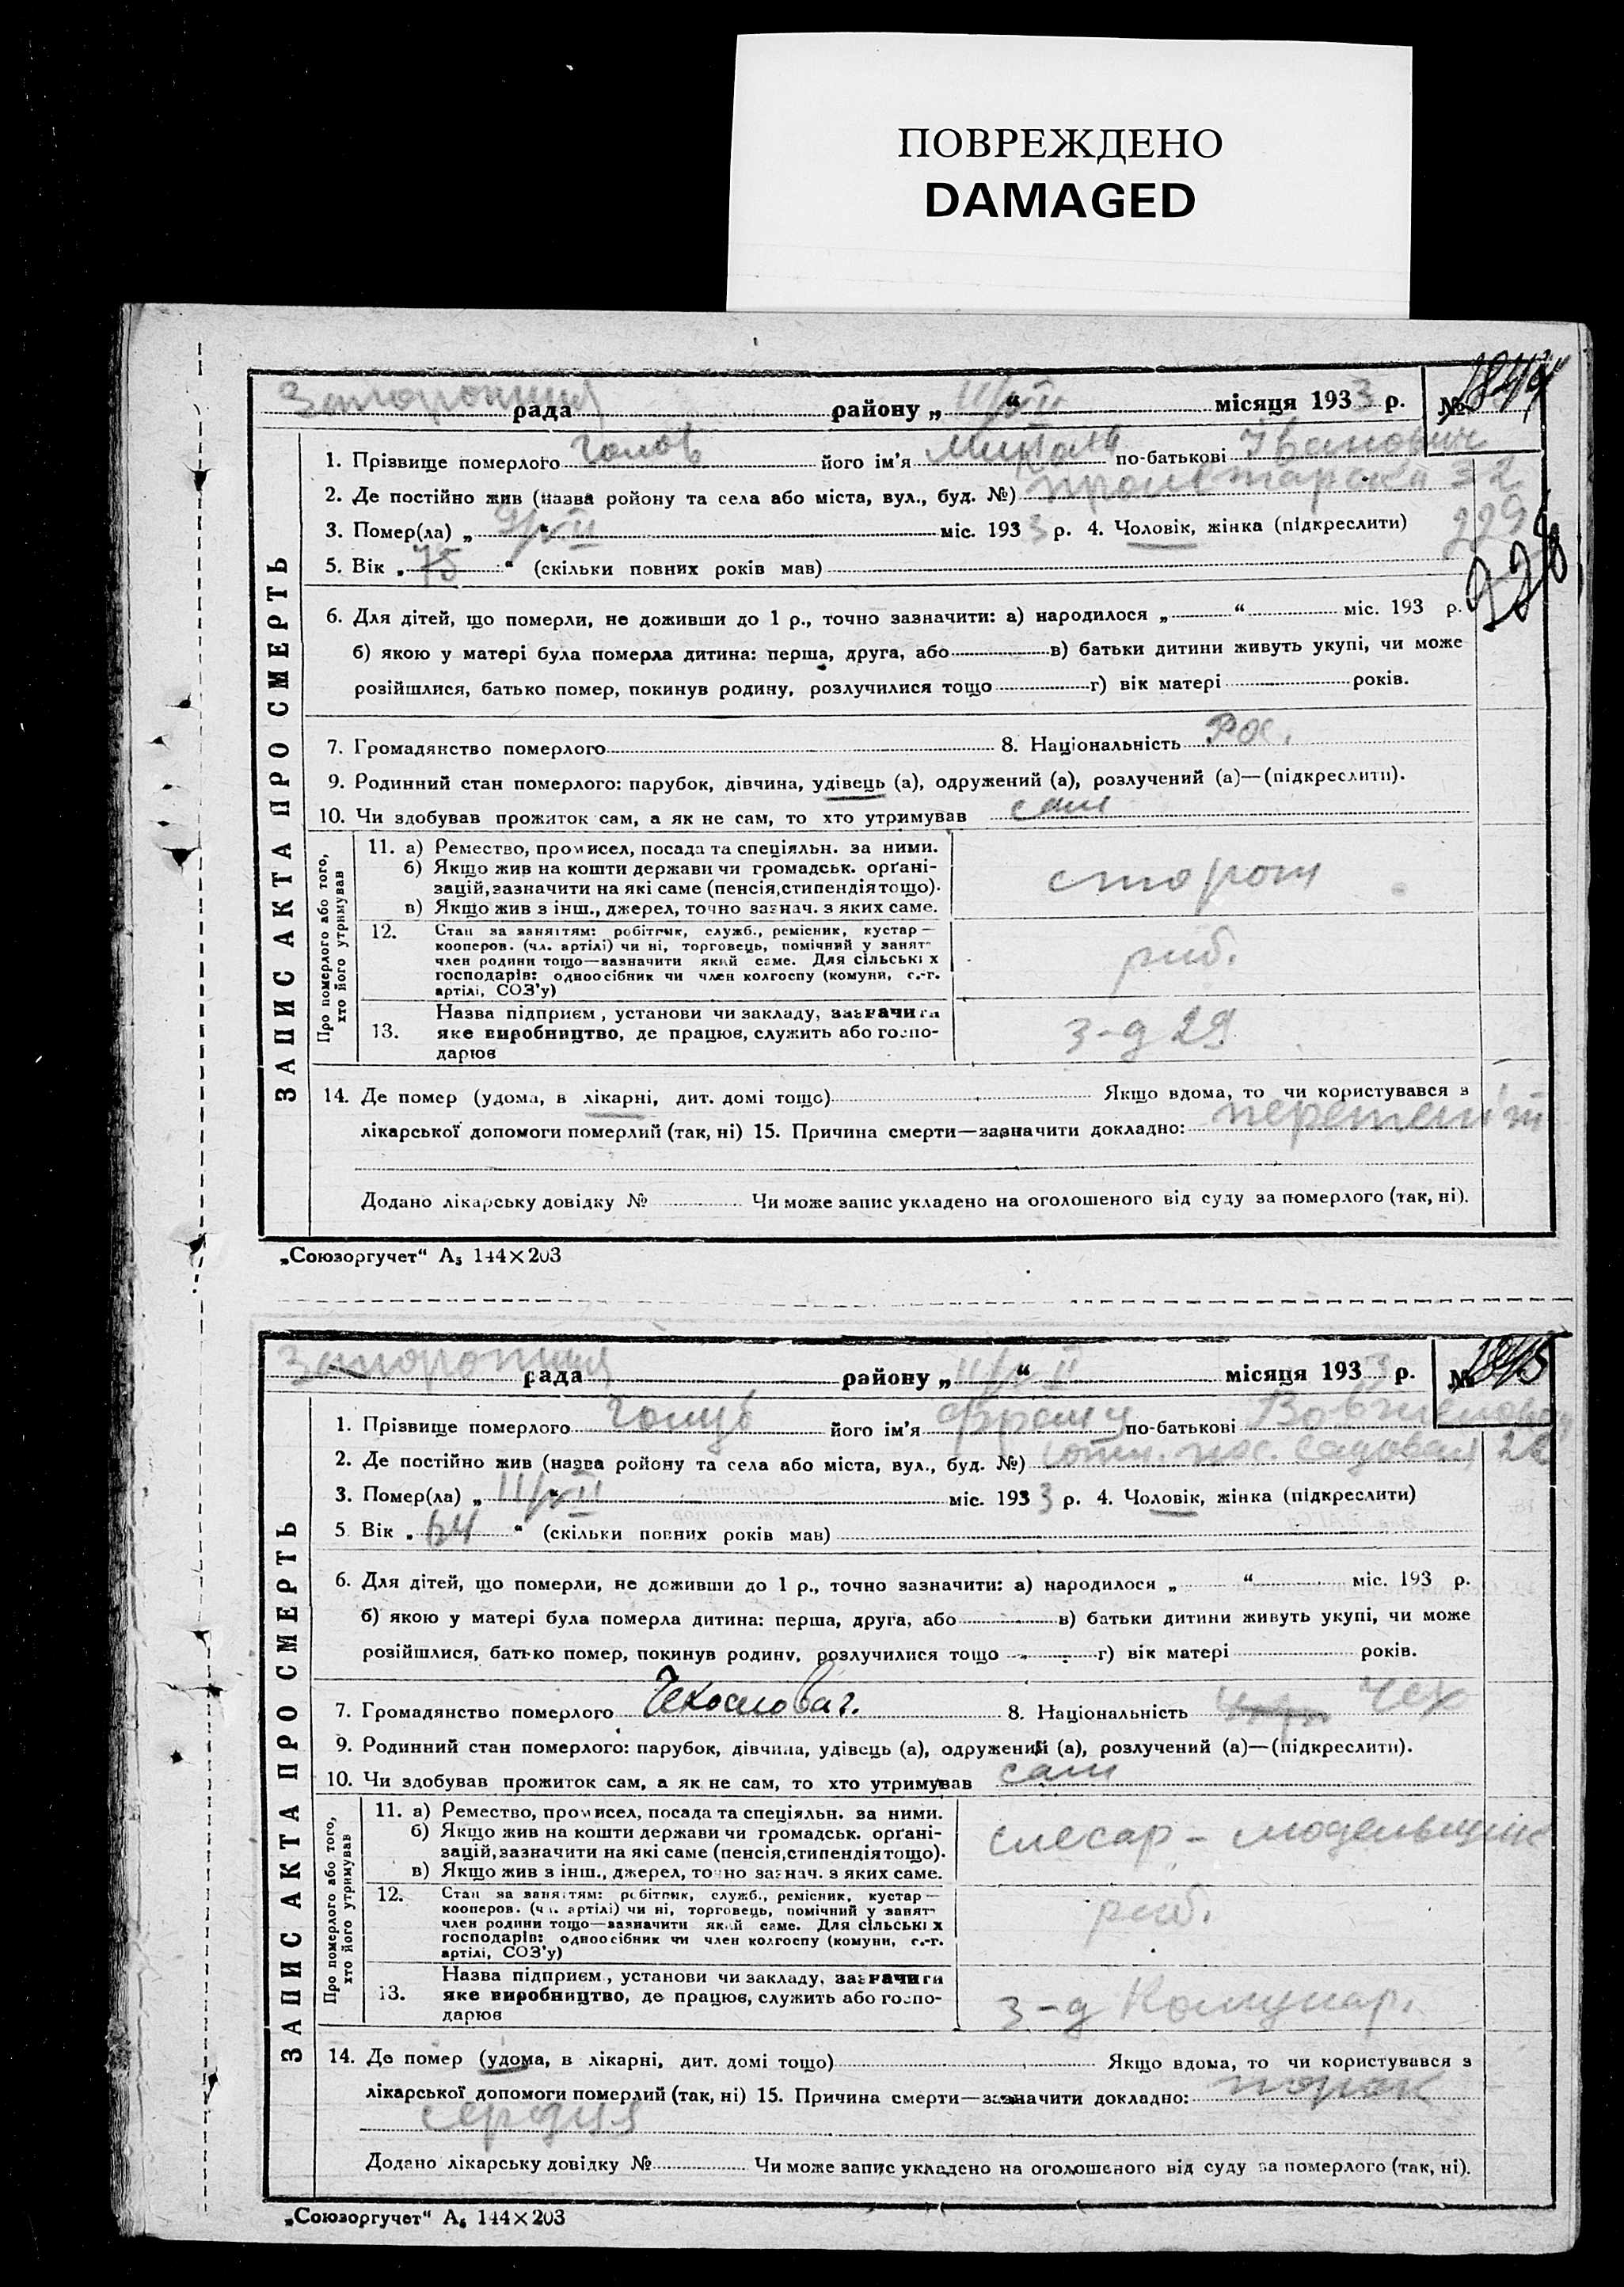 ПОВРЕЖДЕНО
DAMAGED
рада району „ 11/VII “ місяця 1933 р. № 1844
1. Прізвище померлого Голов його ім’я Микола по-батькові Іванович
2. Де постійно жив (назва ройону та села або міста, вул., буд. №) Пролетарська 32
3. Помер(ла) „ 9/VII “ міс. 1933 р. 4. Чоловік, жінка (підкреслити) 229
228
5. Вік „ 75 “ (скільки повних років мав)
6. Для дітей, що померли, не доживши до 1 р., точно зазначити: а) народилося „ “ міс. 193 р.
б) якою у матері була померла дитина: перша, друга, або в) батьки дитини живуть укупі, чи може
розійшлися, батько помер, покинув родину, розлучилися тощо г) вік матері років.
7. Громадянство померлого 8. Національність Рос.
9. Родинний стан померлого: парубок, дівчина, удівець (а), одружений (а), розлучений (а)—(підкреслити).
10. Чи здобував прожиток сам, а як не сам, то хто утримував сам
ЗАПИС АКТА ПРО СМЕРТЬ
Про померлого або того, хто його утримував
11. а) Ремество, промисел, посада та спеціяльн. за ними.
б) Якщо жив на кошти держави чи громадськ. орґані-
зацій, зазначити на які саме (пенсія, стипендія тощо).
в) Якщо жив з інш., джерел, точно зазнач. з яких саме.
сторож
12. Стан за заняттям: робітник, служб., ремісник, кустар —
кооперов. (чл. артілі) чи ні, торговець, помічний у занят-
член родини тощо—зазначити який саме. Для сільських
господарів: одноосібник чи член колгоспу (комуни, с.-г.
артілі, СОЗ’у)
роб.
13. Назва підприєм, установи чи закладу, зазначити
яке виробництво, де працює, служить або госпо-
дарює
з-д 29
14. Де помер (удома, в лікарні, дит. домі тощо) Якщо вдома, то чи користувався з
лікарської допомоги померлий (так, ні) 15. Причина смерти—зазначити докладно:
Додано лікарську довідку № Чи може запис укладено на оголошеного від суду за померлого (так, ні).
„Союзоргучет“ А₅ 144×203
рада району „ 11/VII “ місяця 1933 р. № 1845
1. Прізвище померлого Голуб його ім’я Франц по-батькові
2. Де постійно жив (назва ройону та села або міста, вул., буд. №) пос. Садовая
3. Помер(ла) „ 11/VII “ міс. 1933 р. 4. Чоловік, жінка (підкреслити)
5. Вік „ 64 “ (скільки повних років мав)
6. Для дітей, що померли, не доживши до 1 р., точно зазначити: а) народилося „ “ міс. 193 р.
б) якою у матері була померла дитина: перша, друга, або в) батьки дитини живуть укупі, чи може
розійшлися, батько помер, покинув родину, розлучилися тощо г) вік матері років.
7. Громадянство померлого Чехословач. 8. Національність Чех
9. Родинний стан померлого: парубок, дівчина, удівець (а), одружений (а), розлучений (а)—(підкреслити).
10. Чи здобував прожиток сам, а як не сам, то хто утримував сам
ЗАПИС АКТА ПРО СМЕРТЬ
Про померлого або того, хто його утримував
11. а) Ремество, промисел, посада та спеціяльн. за ними.
б) Якщо жив на кошти держави чи громадськ. орґані-
зацій, зазначити на які саме (пенсія, стипендія тощо).
в) Якщо жив з інш., джерел, точно зазнач. з яких саме.
слесар - модельщик
12. Стан за заняттям: робітник, служб., ремісник, кустар —
кооперов. (чл. артілі) чи ні, торговець, помічний у занят-
член родини тощо—зазначити який саме. Для сільських
господарів: одноосібник чи член колгоспу (комуни, с.-г.
артілі, СОЗ’у)
роб.
13. Назва підприєм, установи чи закладу, зазначити
яке виробництво, де працює, служить або госпо-
дарює
з-д Комунар.
14. Де помер (удома, в лікарні, дит. домі тощо) Якщо вдома, то чи користувався з
лікарської допомоги померлий (так, ні) 15. Причина смерти—зазначити докладно: порок
сердця
Додано лікарську довідку № Чи може запис укладено на оголошеного від суду за померлого (так, ні).
„Союзоргучет“ А₅ 144×203